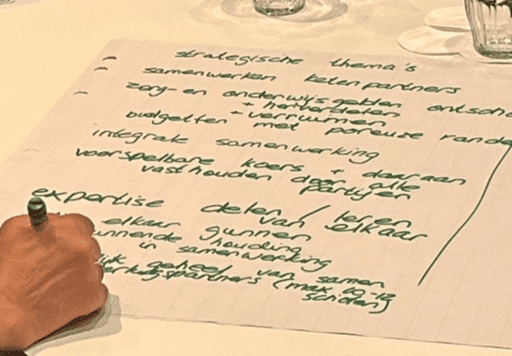 strategische thema's
samenwerken ketenpartners
zorg- en onderwijsgelden ontscho
+ herverdelen
budgetten + verruimen
met poreuze rande
integrale samenwerking
voorspelbare koers + daaraan
vasthouden door alle
partijen
expertise delen / leren
van elkaar
elkaar gunnen
unnende houding
in samenwerking
geheel van samen
partners (max 10-12
scholen)